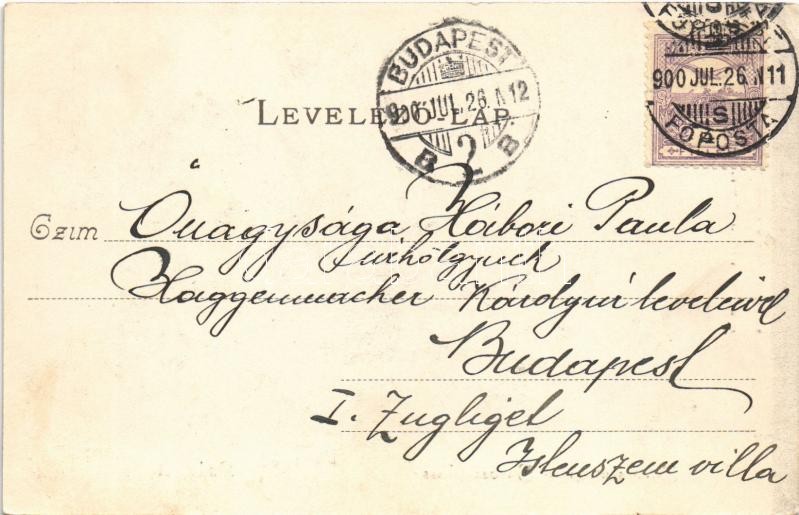 BUDAPEST
900 JUL. 26. N 12
B 2 B
FŐPOSTA
900 JUL. 26. N 11
S
FŐPOSTA
LEVELEZŐ-LAP.
Czim Őnagysága Hábori Paula
úrhölgynek
Haggenmacher Károlyúr leveleivel
Budapest
I. Zugliget
Istenszem villa